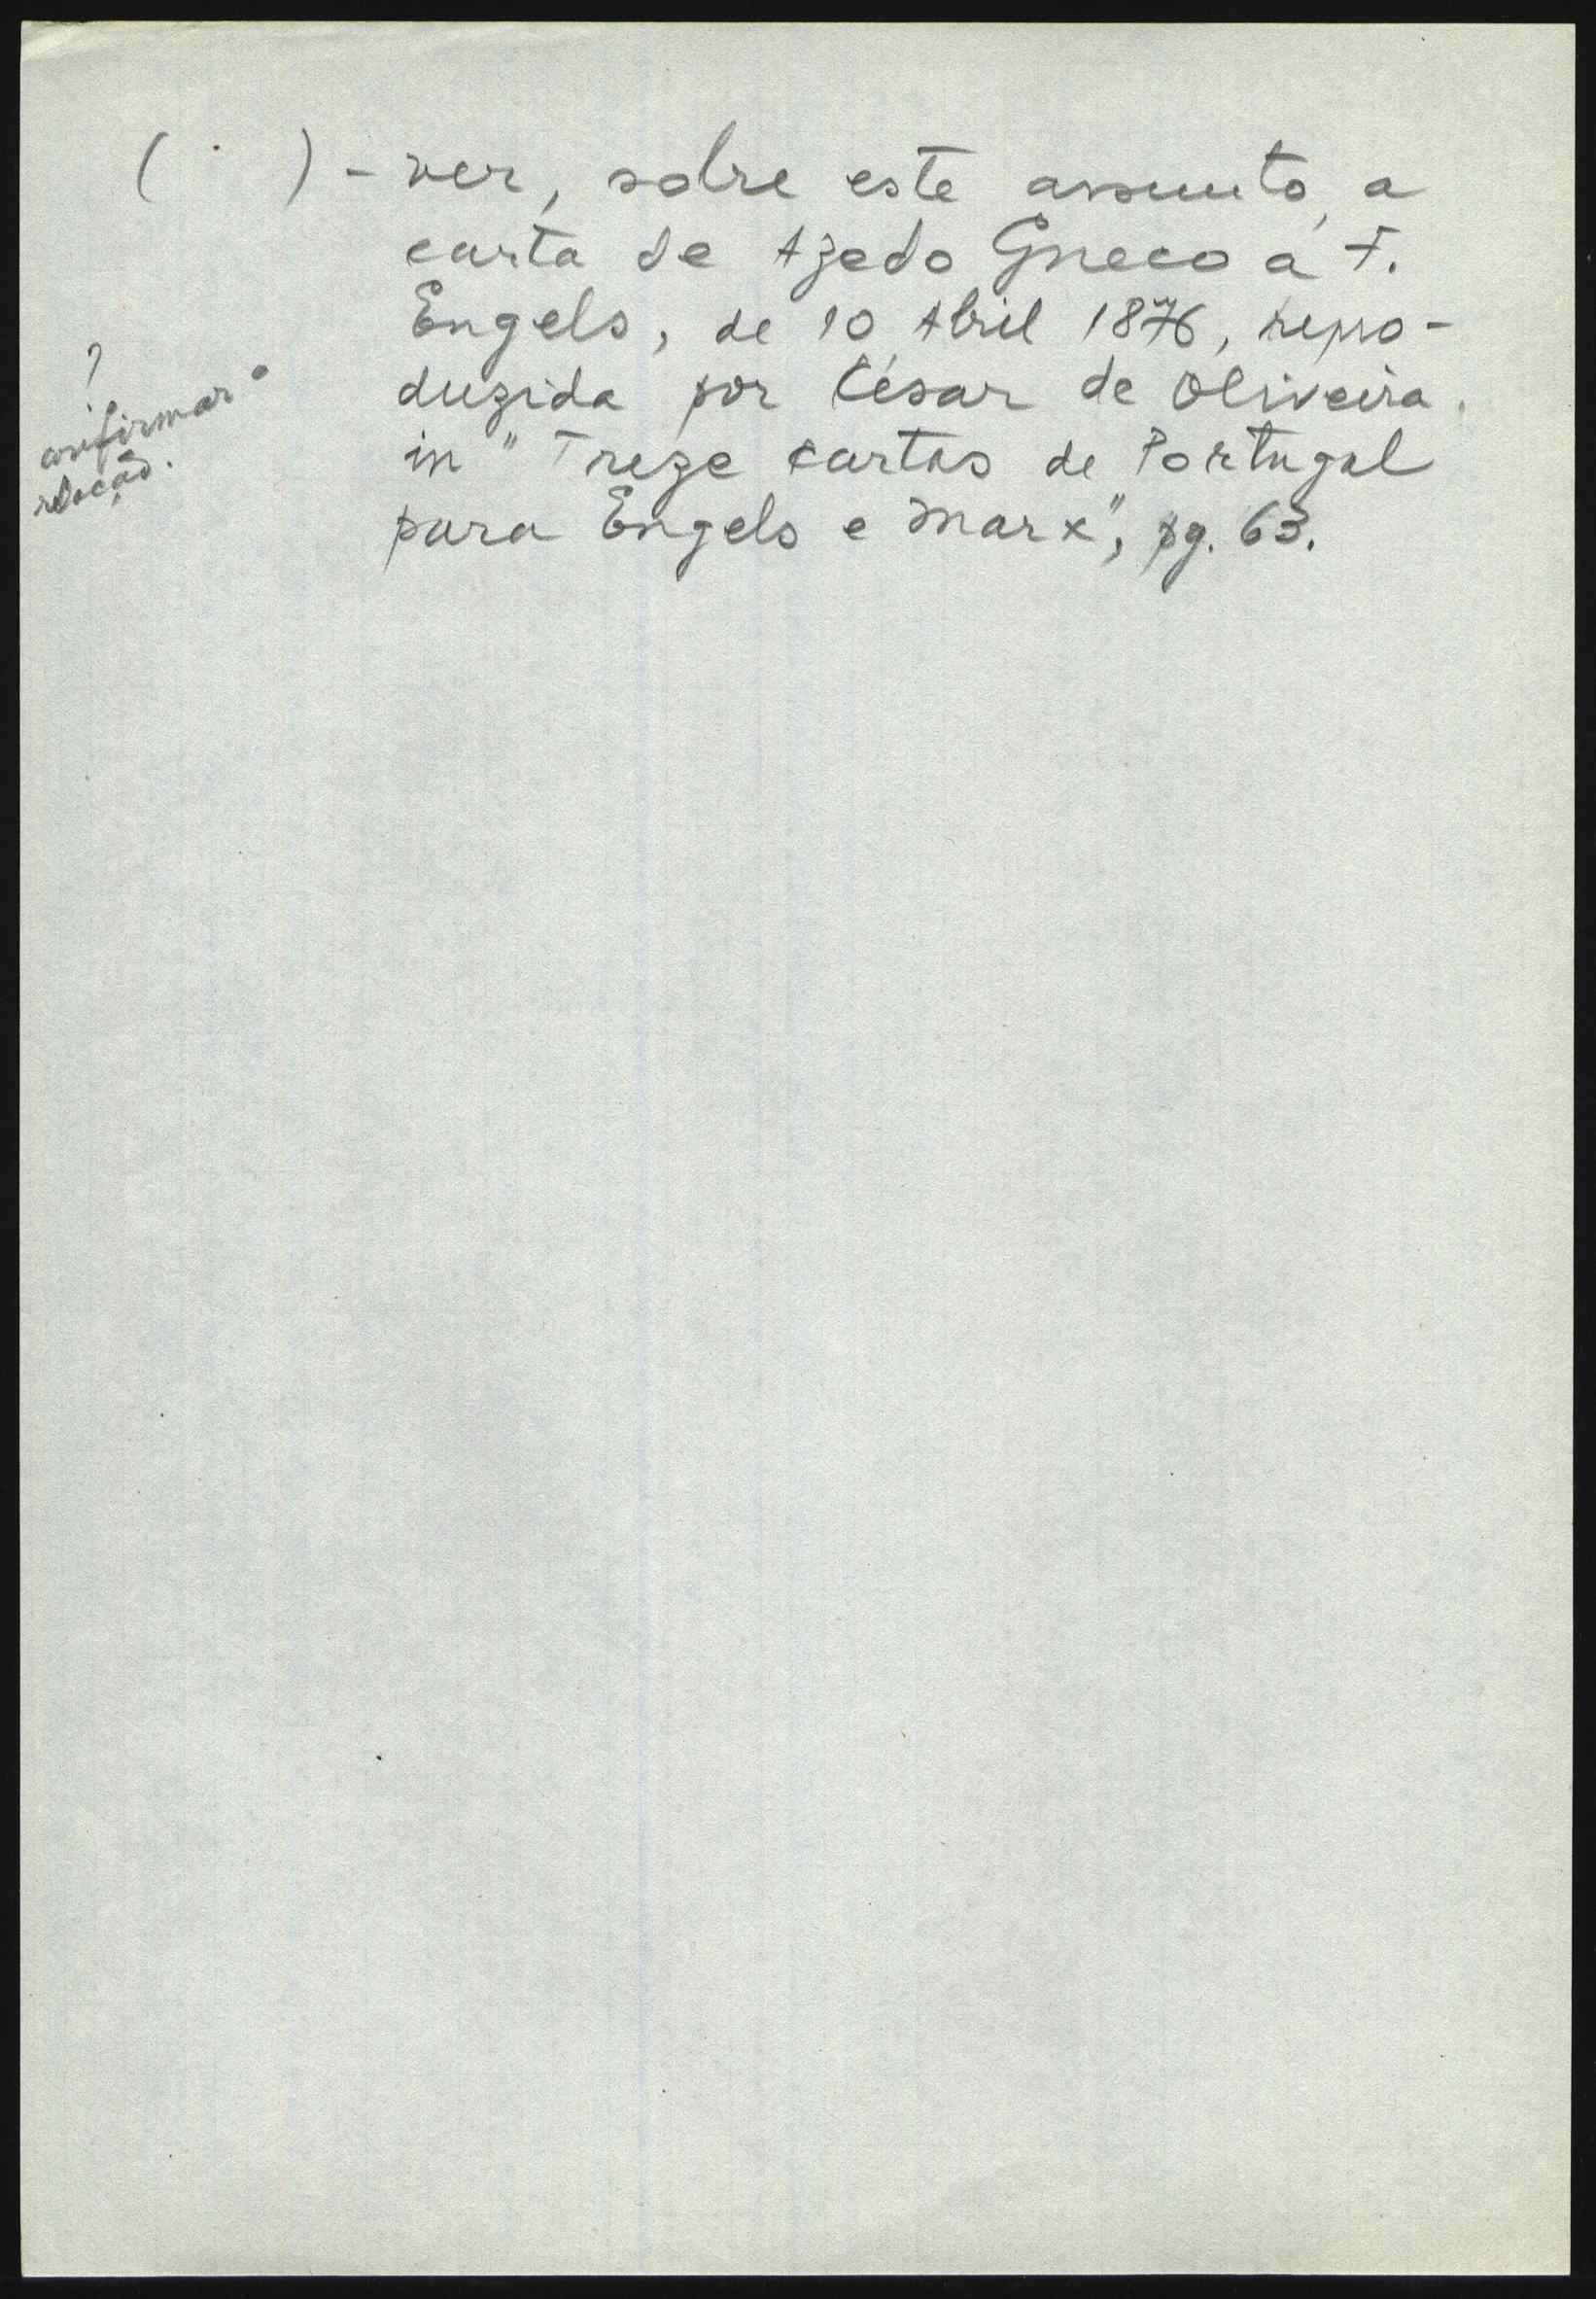 ( ) - ver, sobre este assunto, a
carta de Azedo Gneco a F.
Engels, de 10 Abril 1876, repro-
duzida por César de Oliveira
in "Treze cartas de Portugal
para Engels e Marx", pg. 63.
?
confirmar
relação.